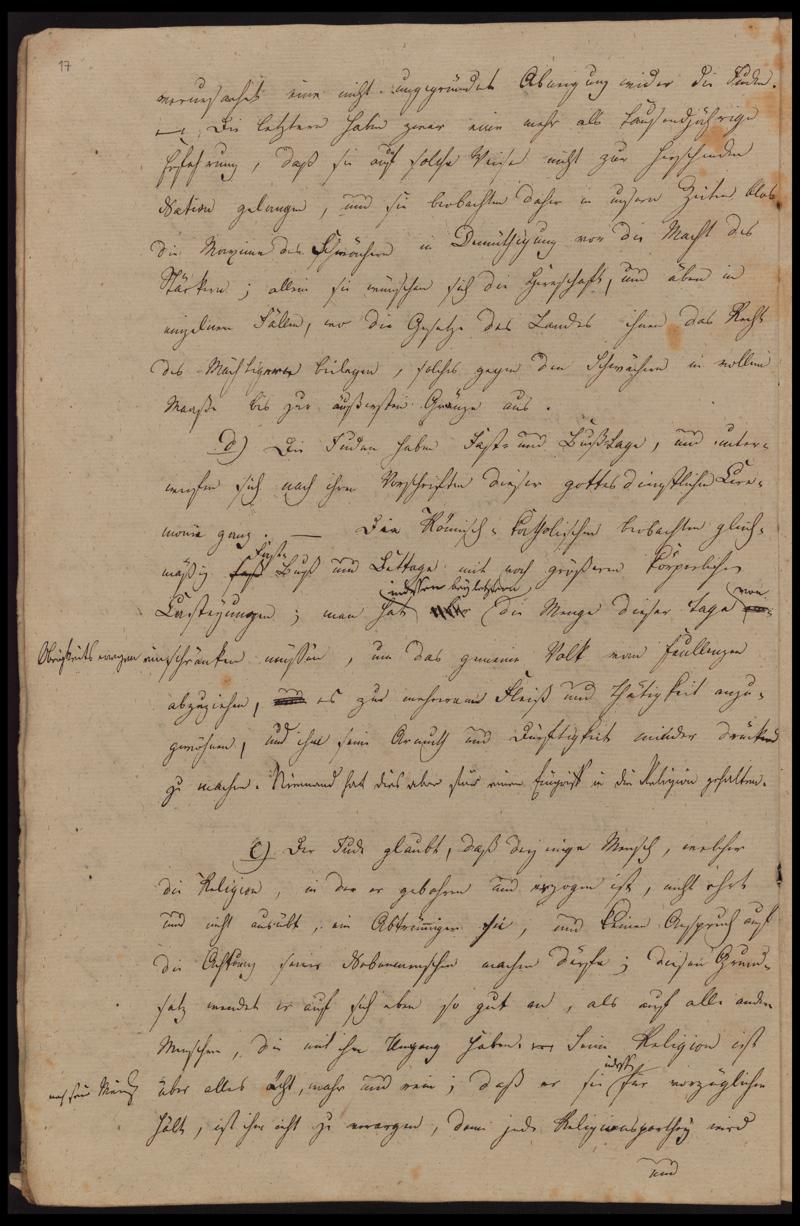 17
verursachet eine nicht ungegründete Abneigung wider die Juden.
— Die letztern haben zwar eine mehr als tausendjährige
Erfahrung, daß sie auf solche Weise nicht zur herrschenden
Nation gelangen, und sie beobachten daher in unsern Zeiten blos
die Maxime des Schwächern in Demüthigung vor der Macht des
Stärkern; allein sie wünschen sich die Herrschaft, und üben in
einzelnen Fällen, wo die Gesetze des Landes ihnen das Recht
des Mächtigern beilegen, solches gegen den Schwächern in vollem
Maaße bis zur äußersten Gränze aus.
d) Die Juden haben Fast- und Bußtage, und unter-
werfen sich nach ihren Vorschriften dieser gottesdienstlichen Cere-
monie ganz. — Die Römisch-Katholischen beobachten gleich-
mäßig Fast- Buß und Bettage mit noch größeren körperlichen
Casteyungen; man hat indessen bey letztern die Menge dieser Tage von
Obrigkeits wegen einschränken müssen, um das gemeine Volk vom Faullenzen
abzuziehen, es zu mehrerem Fleiß und Thätigkeit anzu-
gewöhnen, und ihm seine Armuth und Dürftigkeit minder drückend
zu machen. Niemand hat dies aber für einen Eingriff in die Religion gehalten.
e) Der Jude glaubt, daß derjenige Mensch, welcher
die Religion, in der er gebohren und erzogen ist, nicht ehrt
und nicht ausübt, ein Abtrünniger sei, und keinen Anspruch auf
die Achtung seiner Nebenmenschen machen dürfe; diesen Grund-
satz wendet er auf sich eben so gut an, als auf alle andere
Menschen, die mit ihm Umgang haben. Seine Religion ist
nach seiner Meinung über alles ächt, wahr und rein; daß er sie indeß für vorzüglicher
hält, ist ihm nicht zu verargen, denn jede Religionsparthey wird
und